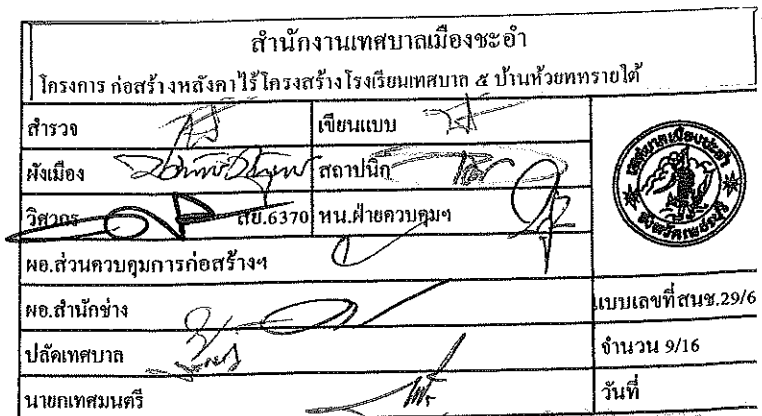 สำนักงานเทศบาลเมืองชะอำ
โครงการ ก่อสร้างหลังคาไร้โครงสร้าง โรงเรียนเทศบาล ๕ บ้านห้วยทรายใต้
สำรวจ เขียนแบบ
ผังเมือง สถาปนิก
วิศวกร สย.6370 หน.ฝ่ายควบคุมฯ
ผอ.ส่วนควบคุมการก่อสร้างฯ
ผอ.สำนักช่าง แบบเลขที่ สนช.29/6
ปลัดเทศบาล จำนวน 9/16
นายกเทศมนตรี วันที่
เทศบาลเมืองชะอำ
จังหวัดเพชรบุรี